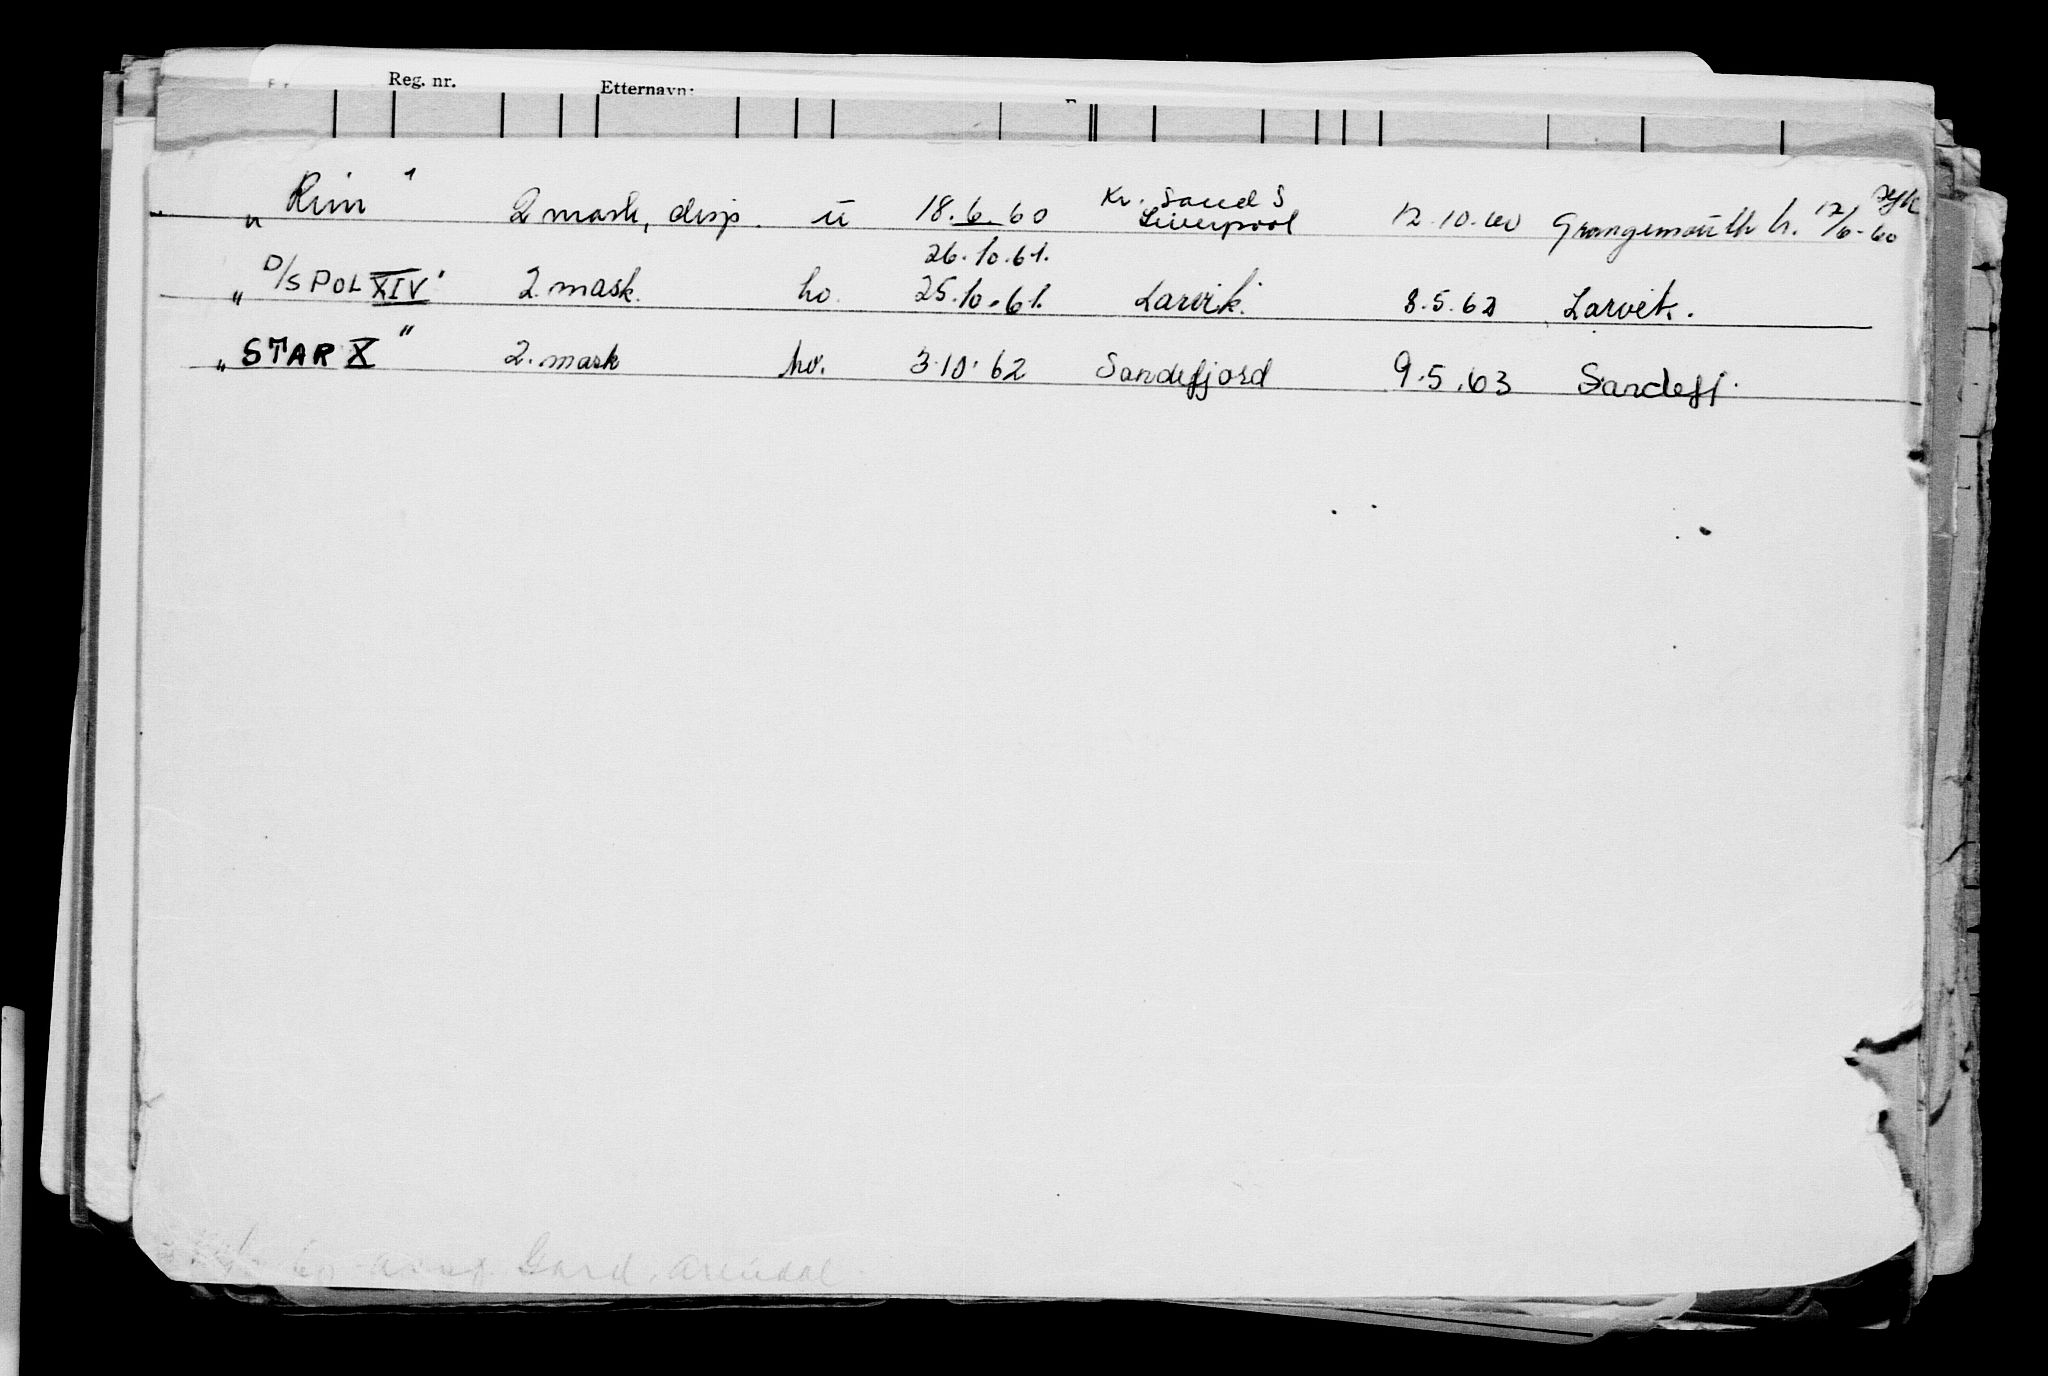 Reg. nr. Etternavn:
Kr. Sand S
„Rim" 2 mask, disp. u 18.6.60 Liverpool 12.10.60 Grangemouth h. 12/6-60 syk
26.10.61.
„D/S POL XIV" 2. mask. ho. 25.10.61. Larvik. 8.5.62 Larvik.
„STAR X" 2. mask ho. 3.10.62 Sandefjord 9.5.63 Sandefj.
Gard, Arendal.